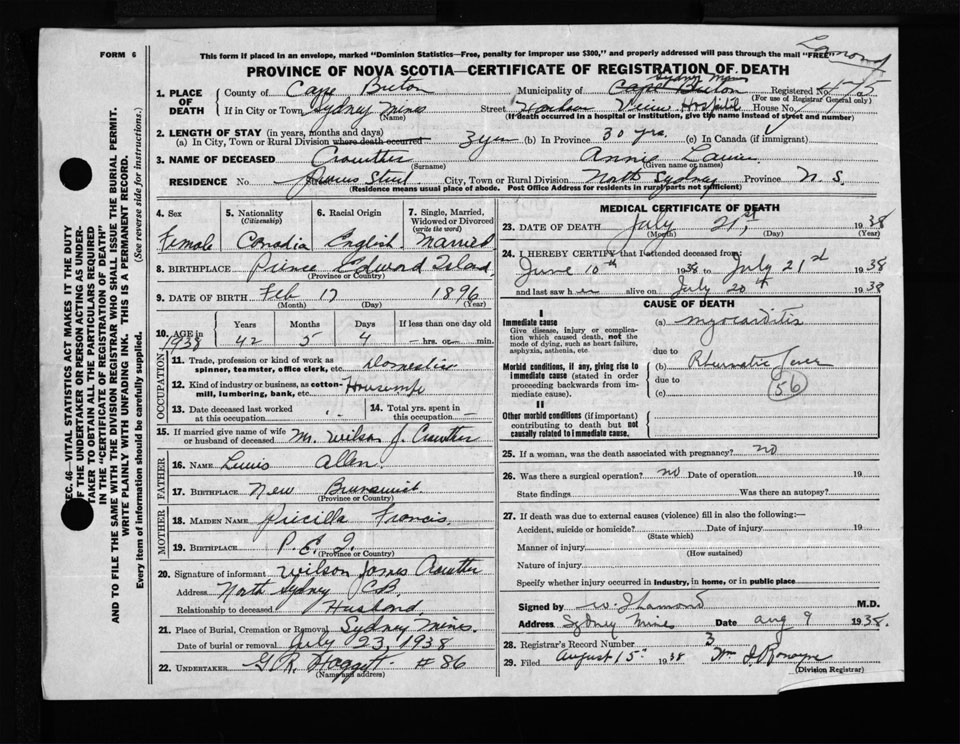 Lamond
FORM 6
This form if placed in an envelope, marked "Dominion Statistics—Free, penalty for improper use $300," and properly addressed will pass through the mail "FREE"
PROVINCE OF NOVA SCOTIA—CERTIFICATE OF REGISTRATION OF DEATH
1. PLACE OF DEATH
County of Cape Breton Municipality of Cape Breton Sydney Mines Registered No.
(For use of Registrar General only)
If in City or Town Sydney Mines Street Harbor View Hospital House No.
(Name) (If death occurred in a hospital or institution, give the name instead of street and number)
2. LENGTH OF STAY (in years, months and days)
(a) In City, Town or Rural Division where death occurred 3 yrs (b) In Province 30 yrs. (c) In Canada (if immigrant)
3. NAME OF DECEASED Crowther Annie Laurie
(Surname) (Given name or names)
RESIDENCE No. Street, City, Town or Rural Division North Sydney Province N. S.
(Residence means usual place of abode. Post Office Address for residents in rural parts not sufficient)
4. Sex 5. Nationality (Citizenship) 6. Racial Origin 7. Single, Married, Widowed or Divorced (write the word)
Female Canadia English Married
8. BIRTHPLACE Prince Edward Island
(Province or Country)
9. DATE OF BIRTH Feb 17 1896
(Month) (Day) (Year)
10. AGE in 1938 Years Months Days If less than one day old
42 5 4 — hrs. or — min.
OCCUPATION
11. Trade, profession or kind of work as spinner, teamster, office clerk, etc. Domestic
12. Kind of industry or business, as cotton-mill, lumbering, bank, etc. Housewife
13. Date deceased last worked at this occupation 14. Total yrs. spent in this occupation —
15. If married give name of wife or husband of deceased Mr. Wilson J. Crowther
FATHER
16. NAME Lewis Allen
17. BIRTHPLACE New Brunswick
(Province or Country)
MOTHER
18. MAIDEN NAME Pricilla Francis
19. BIRTHPLACE P. E. I.
(Province or Country)
20. Signature of informant Wilson James Crowther
Address North Sydney C.B.
Relationship to deceased Husband
21. Place of Burial, Cremation or Removal Sydney Mines.
Date of burial or removal July 23, 1938
22. UNDERTAKER #86
(Name and address)
MEDICAL CERTIFICATE OF DEATH
23. DATE OF DEATH July 21st, 1938
(Month) (Day) (Year)
24. I HEREBY CERTIFY that I attended deceased from:
June 10th 1938 to July 21st 1938
and last saw her alive on July 20th 1938
CAUSE OF DEATH
I
Immediate cause (a) Myocarditis
Give disease, injury or complication which caused death, not the mode of dying, such as heart failure, asphyxia, asthenia, etc
due to
Morbid conditions, if any, giving rise to immediate cause (stated in order proceeding backwards from immediate cause). (b) Rheumatic fever
due to
(c) (56)
II
Other morbid conditions (if important) contributing to death but not causally related to immediate cause.
25. If a woman, was the death associated with pregnancy? no
26. Was there a surgical operation? no Date of operation 19
State findings Was there an autopsy?
27. If death was due to external causes (violence) fill in also the following:—
Accident, suicide or homicide? Date of injury 19
(State which)
Manner of injury
(How sustained)
Nature of injury
Specify whether injury occurred in industry, in home, or in public place
Signed by W. J. Lamond M.D.
Address Sydney Mines Date Aug 9 1938.
28. Registrar's Record Number 3
29. Filed August 15th 1938 Wm J. Ronayne
(Division Registrar)
SEC. 46—VITAL STATISTICS ACT MAKES IT THE DUTY
OF THE UNDERTAKER OR PERSON ACTING AS UNDER-
TAKER TO OBTAIN ALL THE PARTICULARS REQUIRED
IN THE "CERTIFICATE OF REGISTRATION OF DEATH"
AND TO FILE THE SAME WITH THE DIVISION REGISTRAR WHO SHALL ISSUE THE BURIAL PERMIT.
WRITE PLAINLY WITH UNFADING INK. THIS IS A PERMANENT RECORD.
Every item of information should be carefully supplied. (See reverse side for instructions.)